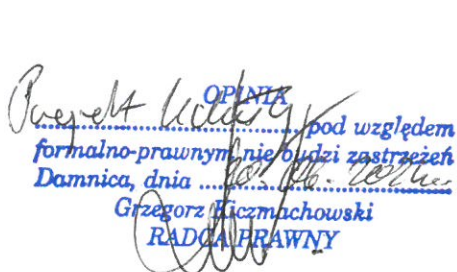 OPINIA
Projekt uchwały pod względem
formalno-prawnym nie budzi zastrzeżeń
Damnica, dnia
Grzegorz Kiczmachowski
RADCA PRAWNY